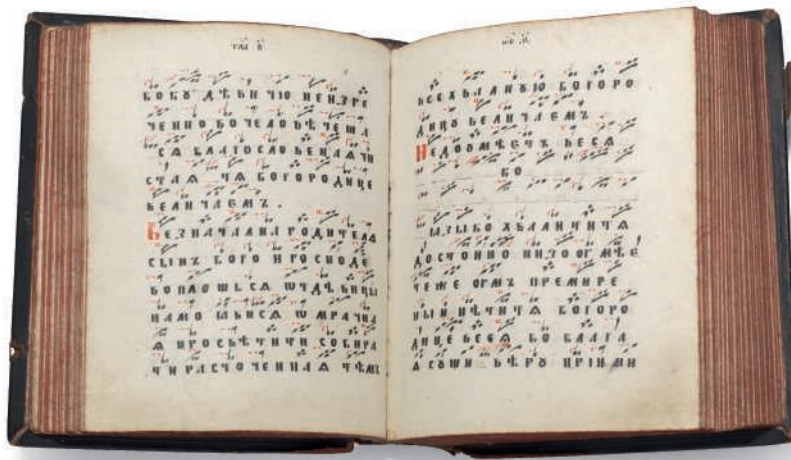 гла в
дѣвитю неизре
ченно во человѣчеша
ся благословеная чи
стая тя богородице
величаемъ.
Безначална родителя
сынъ бого и господе
воплощься
намо ꙗвися ѡмрачна
я просвѣтити собира
ти расточенная тѣмъ
всехвалную богоро
дицѹ величаемъ
Недоѹмѣетъ вься
ко
ызыко хвалититя
достоино низоѹмѣе
теже оѹмъ премире
ныи пѣтитя богоро
дице вьсея бо блага
я сѹщи вѣрѹ приими